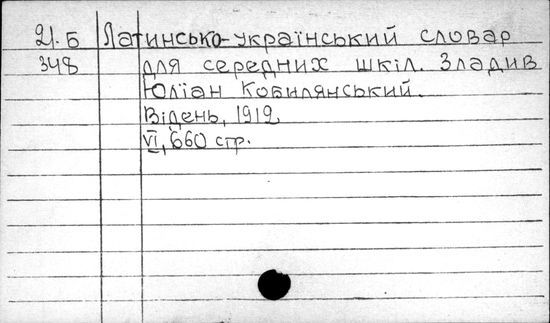 21.Б Латинсько-український словар
348 для середних шкіл. Зладив
Юліан Кобилянський.
Відень, 1912.
VI, 660 стр.